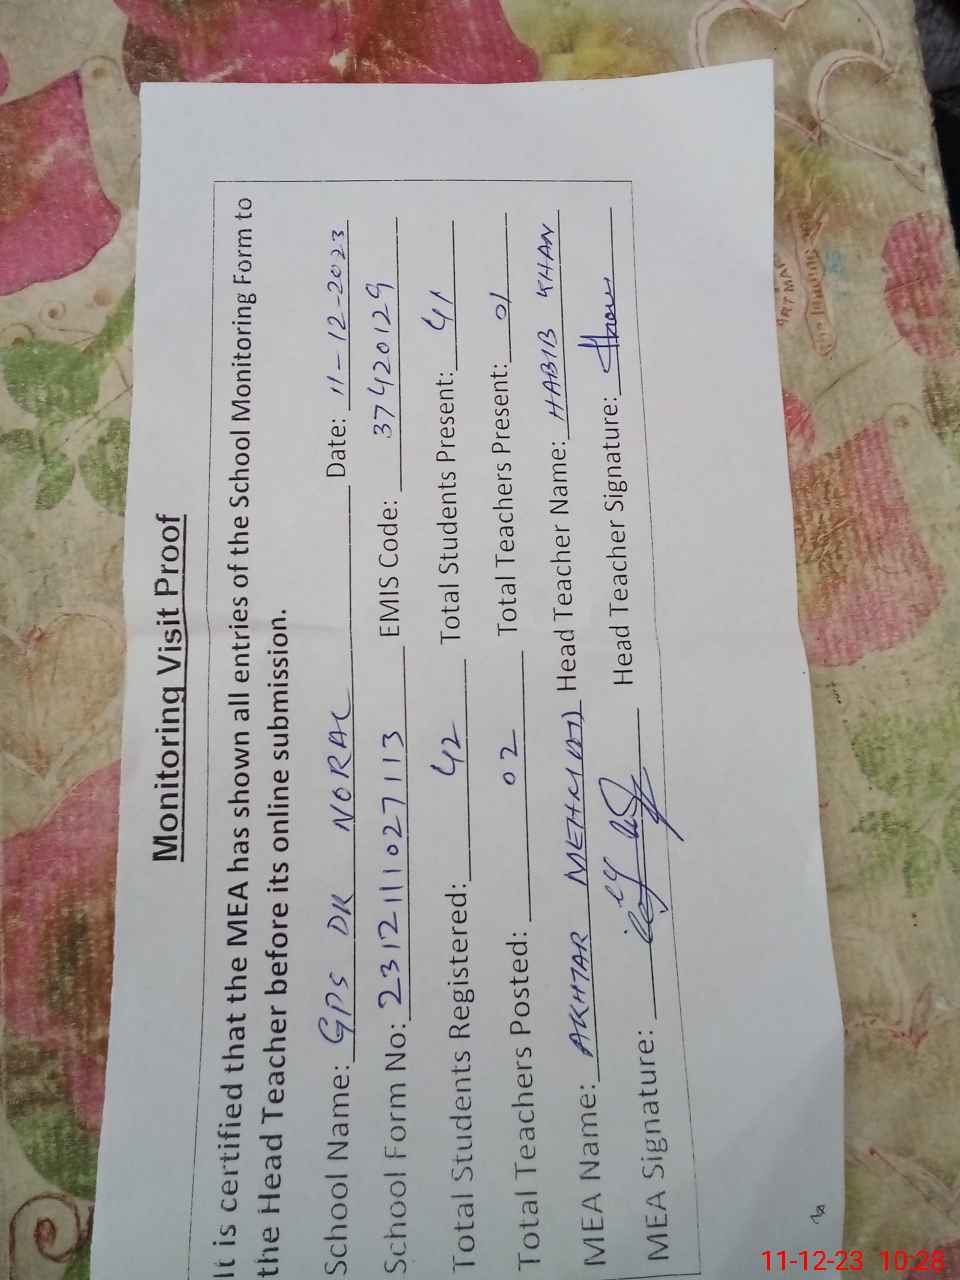 Monitoring Visit Proof
It is certified that the MEA has shown all entries of the School Monitoring Form to
the Head Teacher before its online submission.
School Name: GPS DK NORAL Date: 11-12-2023
School Form No: 231211027113 EMIS Code: 37420129
Total Students Registered: 42 Total Students Present: 41
Total Teachers Posted: 02 Total Teachers Present: 01
MEA Name: AKHTAR MEHMOOD Head Teacher Name: HABIB KHAN
MEA Signature: Head Teacher Signature:
11-12-23 10:28